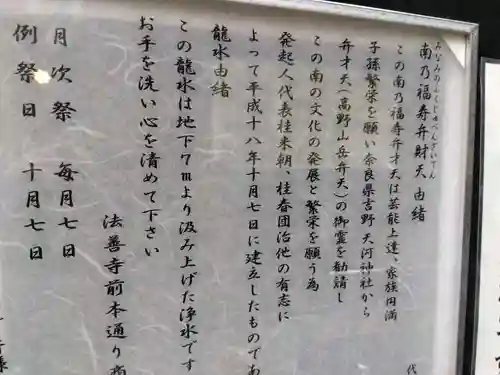 みなみのふくじゅべんざいてん
南乃福寿弁財天 由緒
この南乃福寿弁才天は芸能上達、家族円満
子孫繁栄を願い奈良県吉野天河神社から
弁才天(高野山岳弁天)の御霊を勧請し
この南の文化の発展と繁栄を願う為
発起人代表桂米朝、桂春団治他の有志に
よって平成十八年十月七日に建立したものであ
龍水由緒
この龍水は地下7mより汲み上げた浄水です
お手を洗い心を清めて下さい
法善寺前本通り商
月次祭 毎月七日
例祭日 十月七日
代